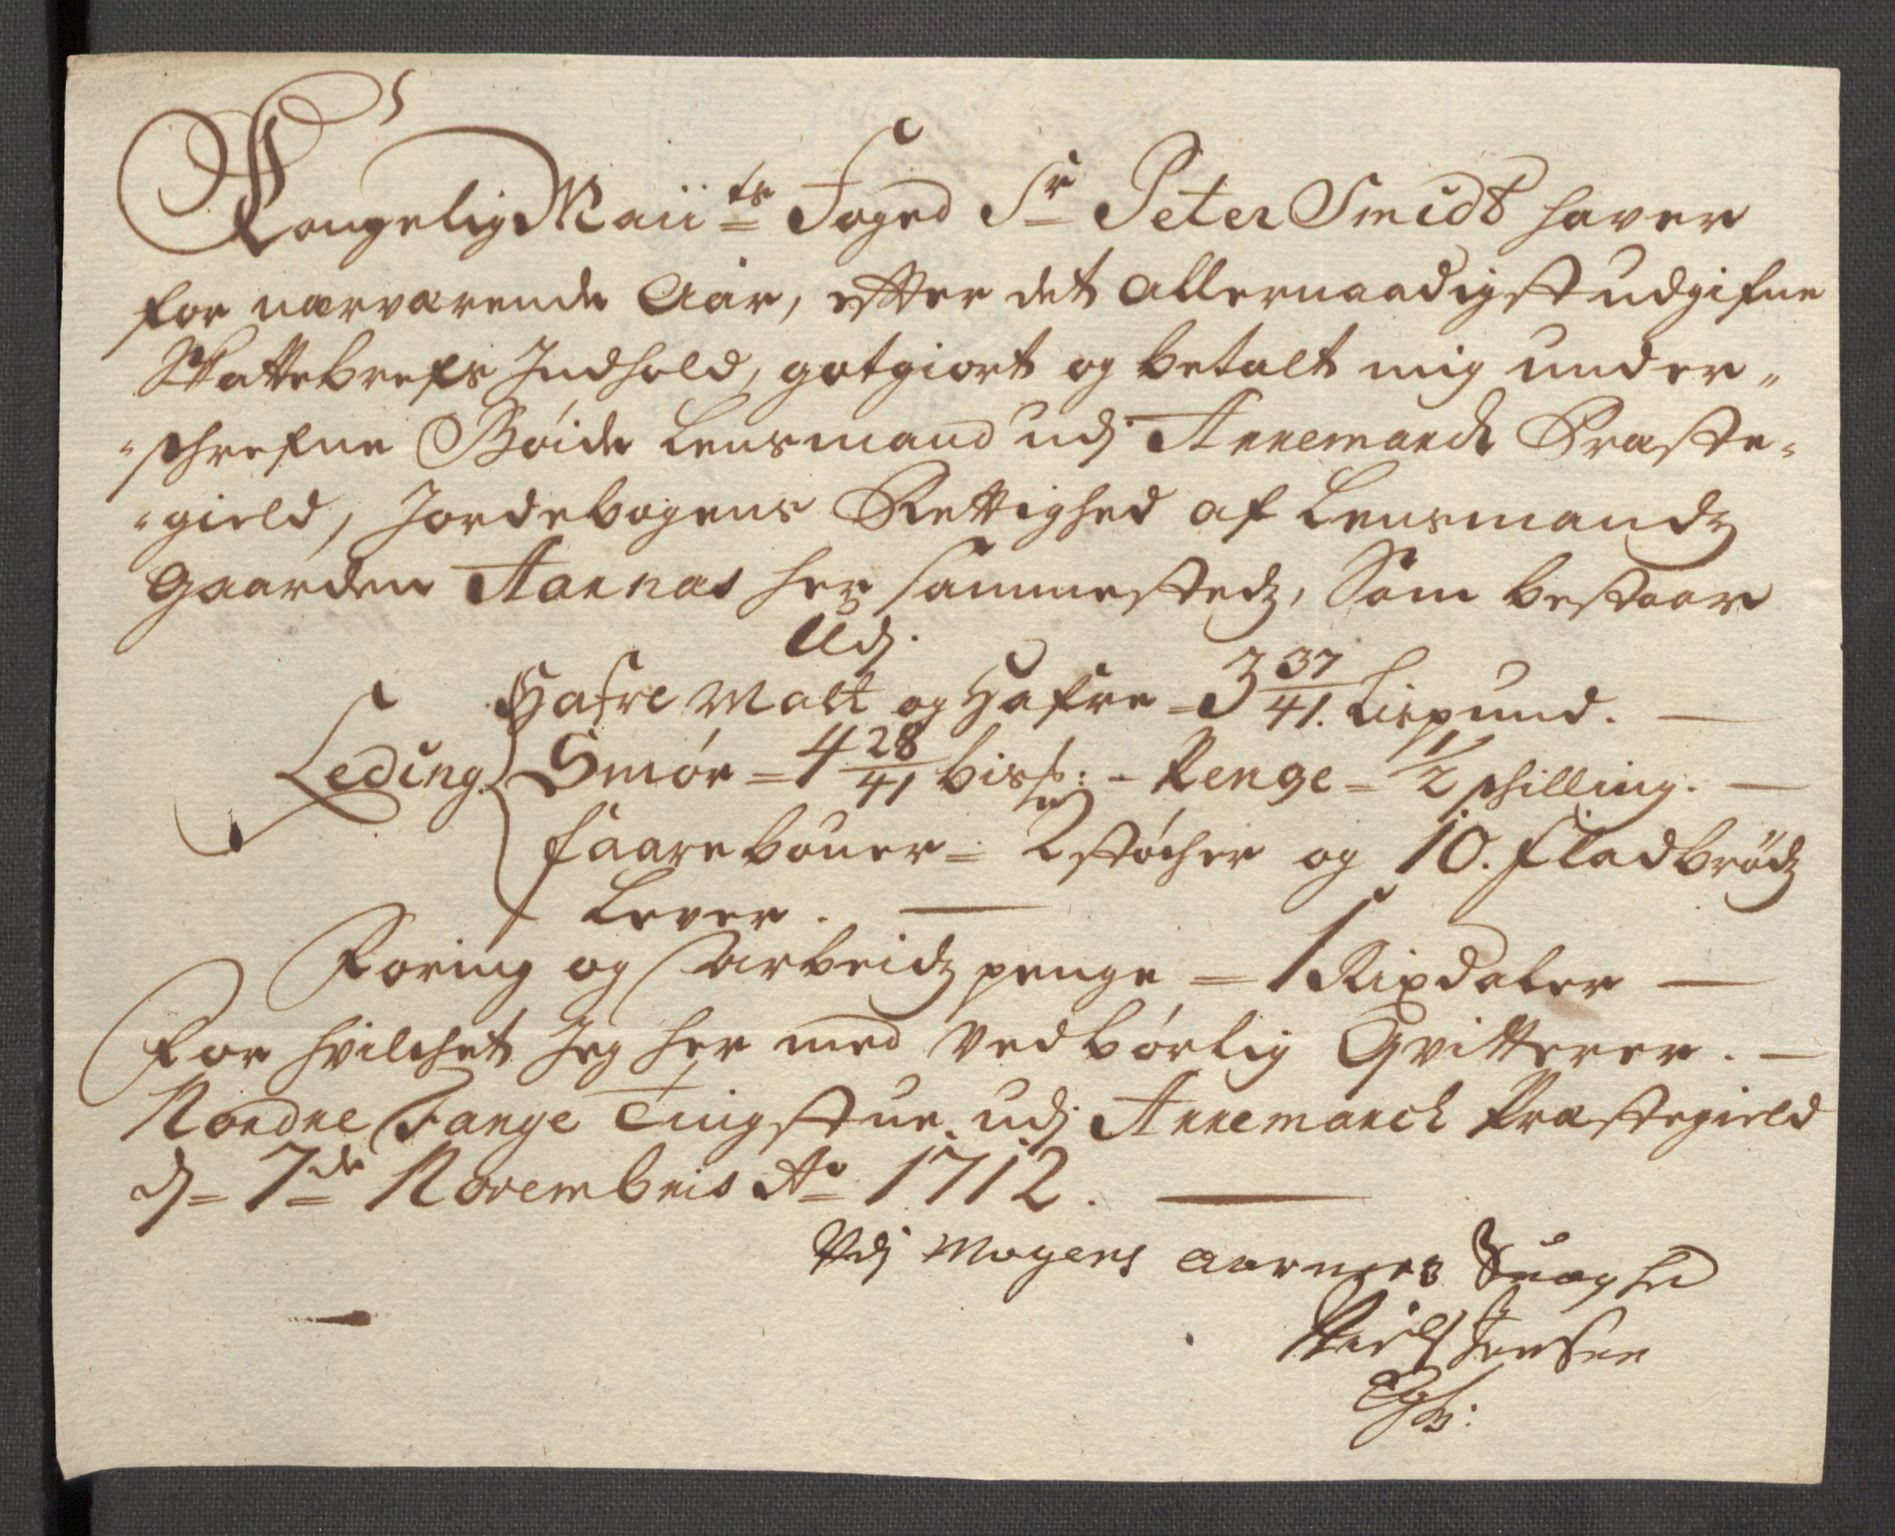 Kongelig Maiits Foged Sr Peter Smidt haver
for nærværende Aar, efter det Allernaadigst udgifne
Skattebrefs Indhold, gotgiort og betalt mig under-
-schrefne Bøide Lensmand udj Annemarck Præste-
-gield, Jordebogens Rettighed af Lensmandz
Gaarden Aannas her sammestedz, Som bestaar
Udj.
Hafre Malt og Hafre = 3 37/41. Lispund. —
Leding Smør = 4 28/41 bis: - Penge = 1/2 schilling. —
faarebouer = 2 støcher og 10. fladbrødz
Lever. —
Foring og Arbeidz penge = 1 Rixdaler —
For hvilchet Jeg her med vedbørlig Qvitterer. —
Nordre Fange Tingstue udj Annemarck Præstegield
dj= 7de Novembris Ao 1712. —
Mogens
Jensen